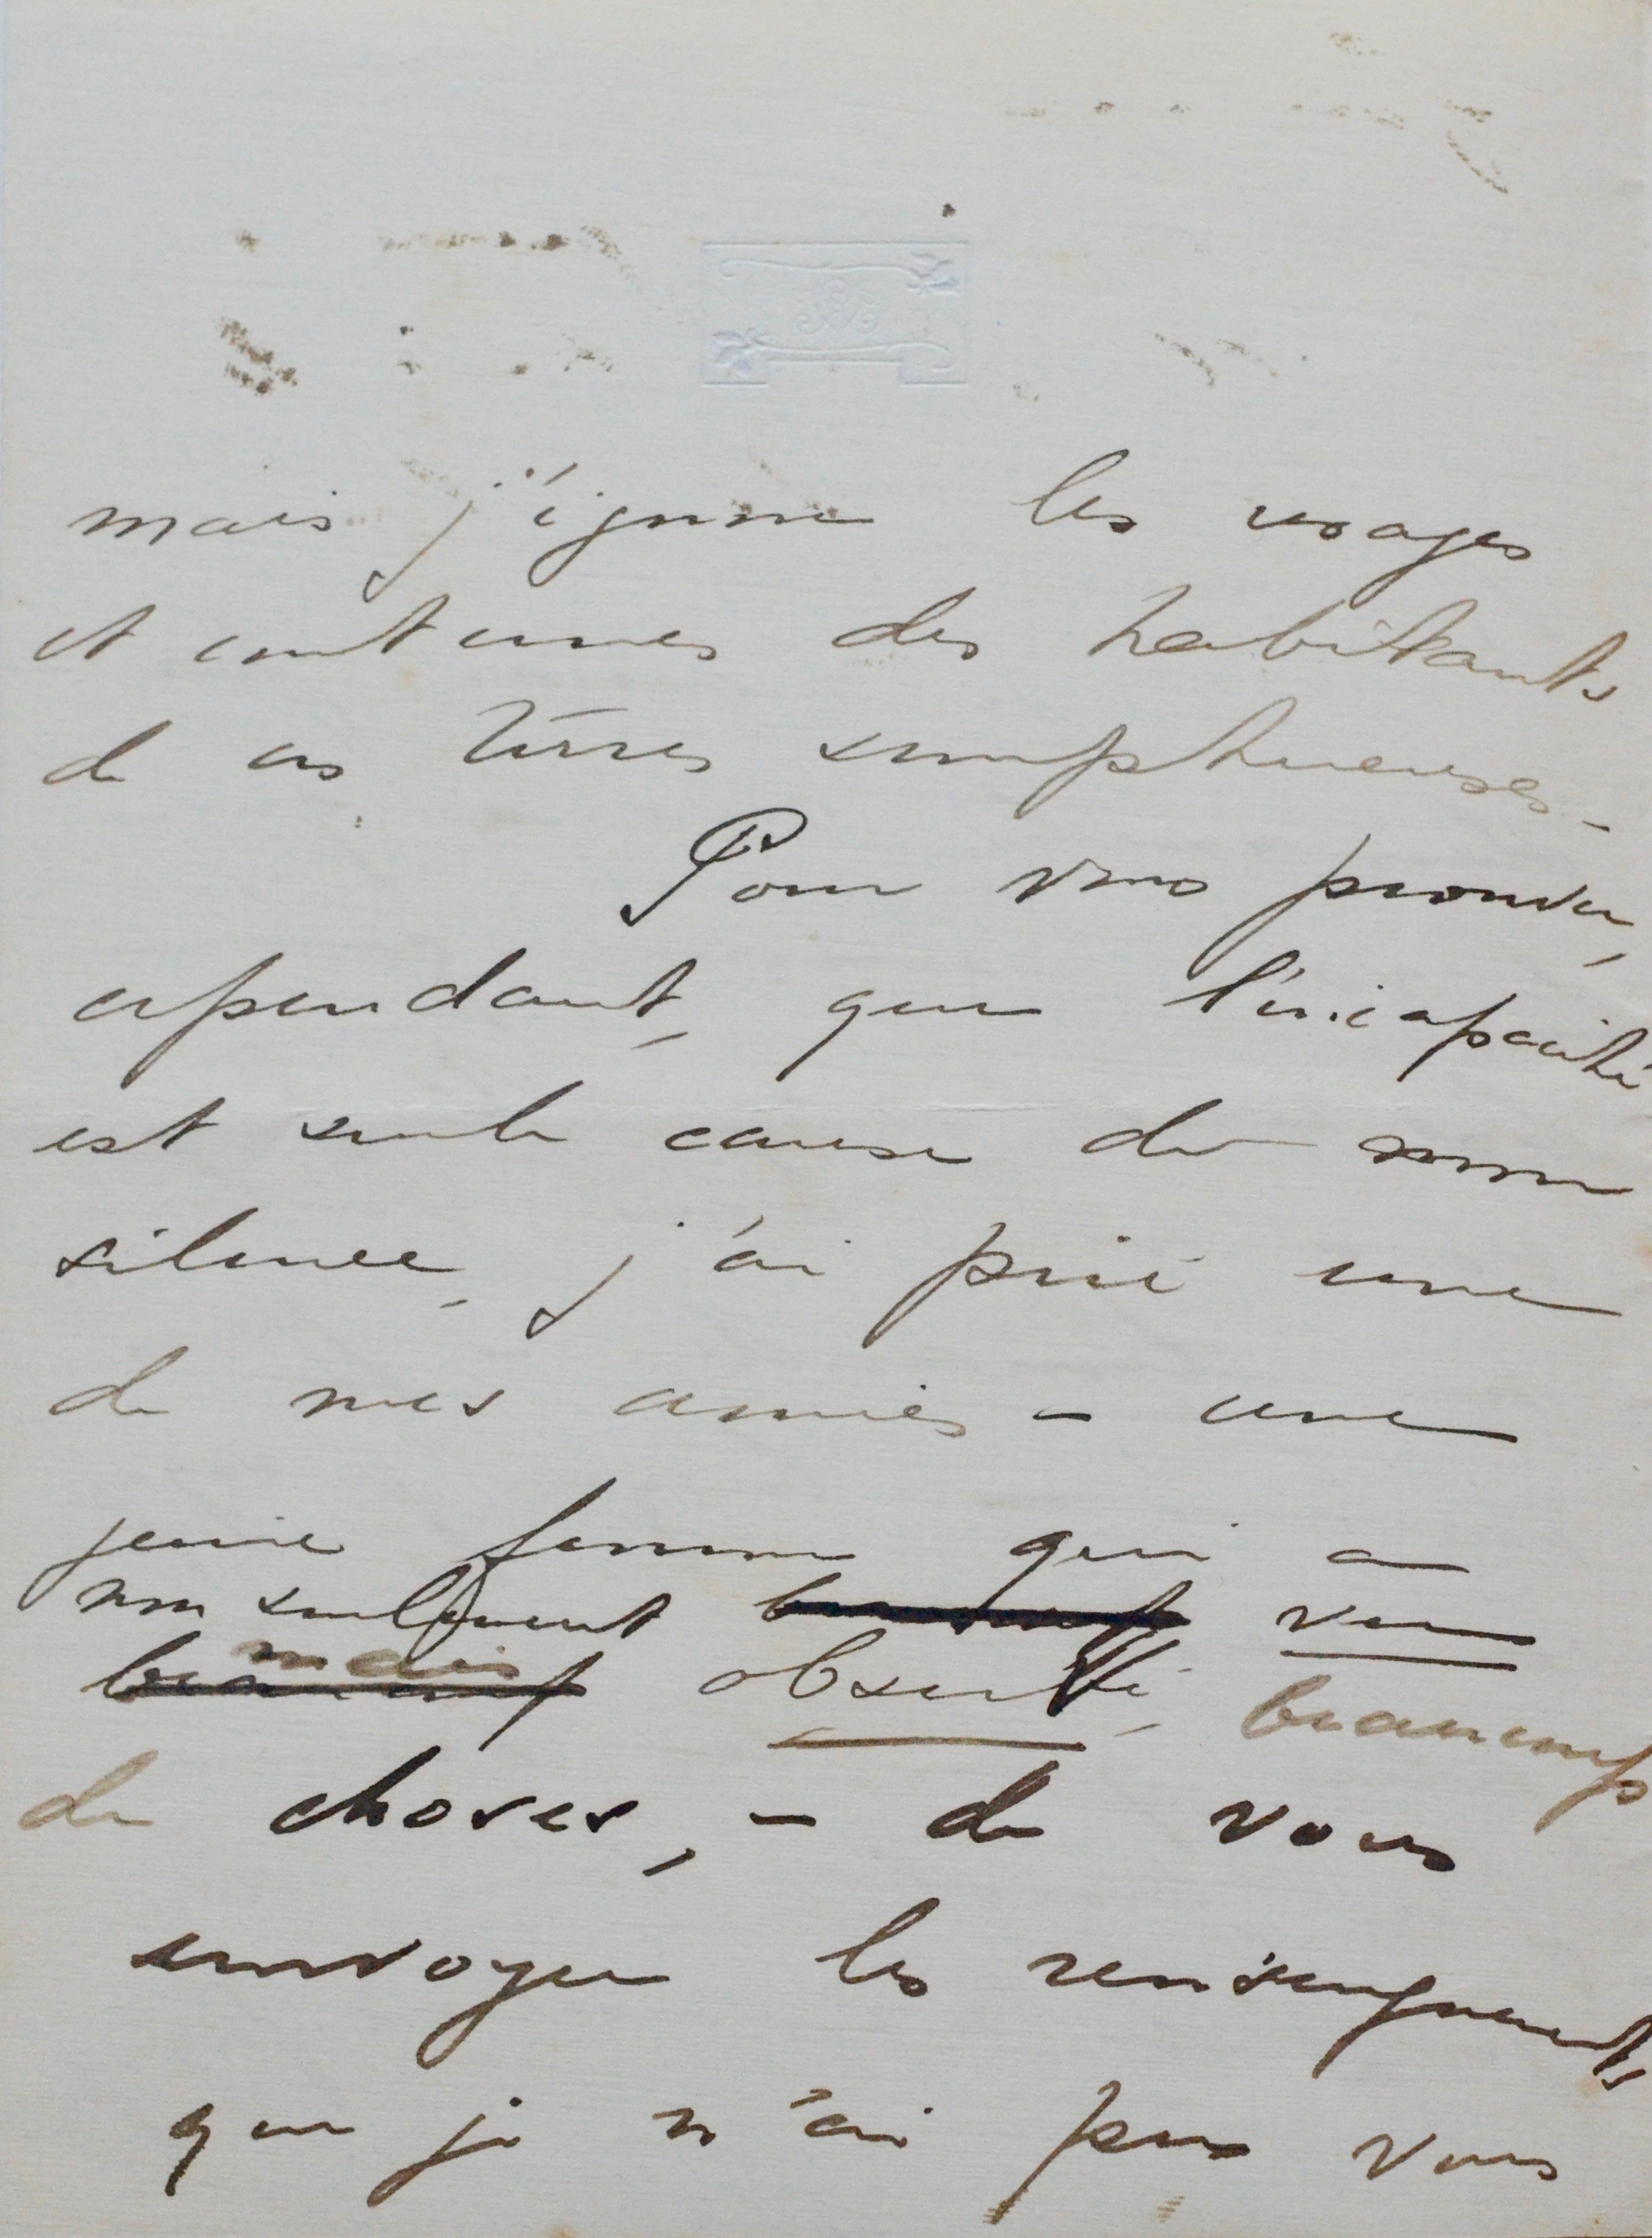 mais j'ignore les usages
et coutumes des habitants
de ces terres somptueuses -
Pour vous prouver,
cependant, que l'incapacité
est seule cause de mon
silence, j'ai prié une
de mes amies - une
jeune femme qui a
non seulement beaucoup vu
beaucoup mais observé, beaucoup
de choses, - de vous
envoyer les renseignements
que je n'ai pu vous